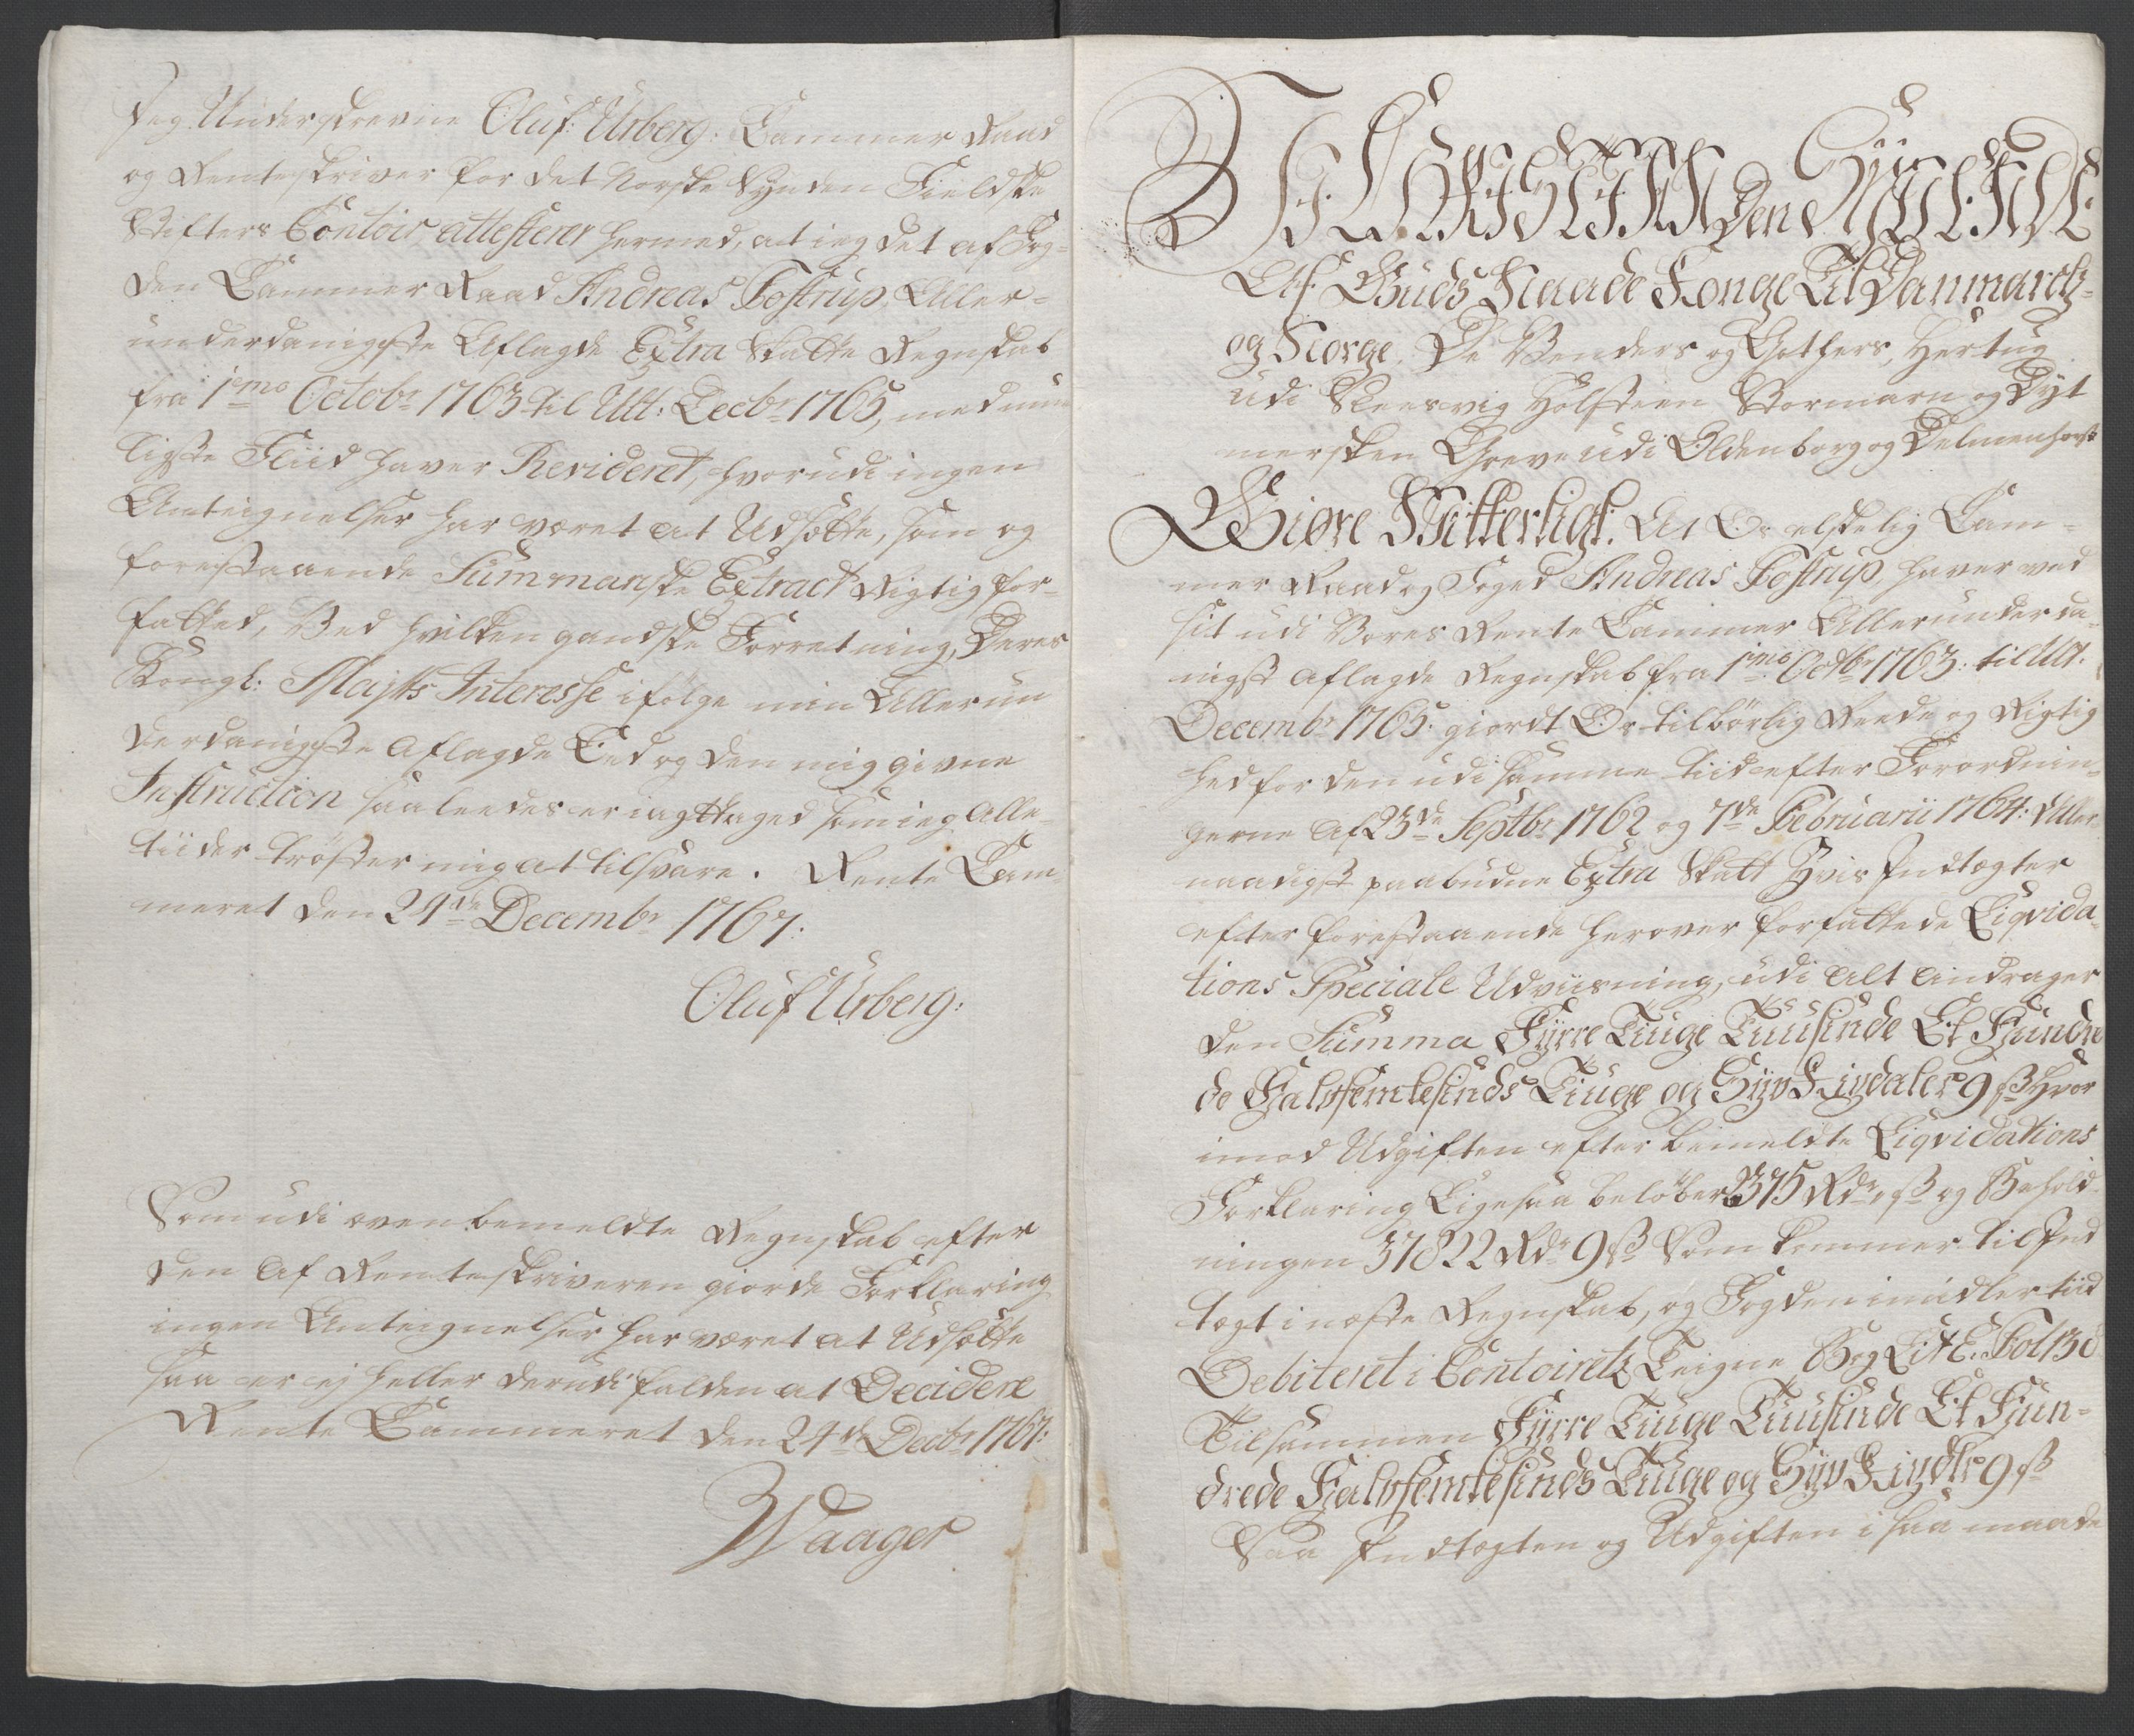 Jeg Underskrevne Oluf Urberg: Cammer Raad
og Renteskriver for det Norske Synden Fieldske
Stifters Contoir attesterer hermed, at ieg det af Fog-
den Cammer Raad Andreas Tostrup Aller-
underdanigste Aflagde Extra Skatte Regnskab
fra 1mo Octobr 1763 til Ult: Decbr 1765, med mue
ligste Fliid haver Revideret, hvorudi ingen
Antegnelser har været at Udsætte, som og
forestaaende Summariske Extract Rigtig for-
fatted, Ved hvilken gandske Forretning, Deres
Kongl: Majts Interesse ifølge min Allerun
derdanigste Aflagde Eed og den mig givne
Instruction saaledes er iagttaged som ieg Alle-
tiider trøster mig at tilsvare. Rente Cam-
meret den 24de Decembr 1767:
Oluf Urberg:
Som udi ovenbemeldte Regnskab efter
den Af Renteskriveren giorde Forklaring
ingen Antegnelser har været at Udsætte
saa er ej heller derudi falden at Decidere
Rente Cammeret den 24de Decbr 1767:
Waager
Vi CHRISTIAN Den Syvende
Af Guds Naade Konge Til Danmarck-
og Norge, De Venders og Gothers, Hertug
udi Slesvig Holsteen Stormarn og Dyt
mersken Greve udi Oldenborg og Delmenhorst
Giøre Witterligt. At Os elskelig Cam-
mer Raad og Foged Andreas Tostrup, haver ved
sit udi Vores Rente Cammer Allerunderda-
nigst Aflagde Regnskab fra 1mo Octbr 1763: til Ult:
Decembr 1765: giordt Os tilbørlig Reede og Rigtig
hed for den udi samme tiid efter Forordnin-
gerne Af 23de Septbr 1762 og 7de Februarii 1764: Aller-
naadigst paabudne Extra Skatt Hvis Indtægter
efter forestaaende herover forfattede Liqvida-
tions Speciale Udviisning, udi Alt Andrager
den Summa Fyrre Tiuge Tuusinde Et Hundre
de Halvfemtesinds Tiuge og Syv Rigdaler 9 ß Hvor
imod Udgiften efter bemeldte Liqvidations
Forklaring Ligesaa beløber 2375 Rdr, ß og Behold-
ningen 37822 Rdr 9 ß Som kommer til Ind
tægt i næste Regnskab, og Fogden imidlertiid
Debiteret i Contoiretz Teigne Bog Lit E: Fol 130
Tilsammen Fyrre Tiuge Tuusinde Et Hun-
drede Halvfemtesinds Tiuge og Syv Rigdlr 9 ß
Saa Indtægten og Udgiften i saa maade